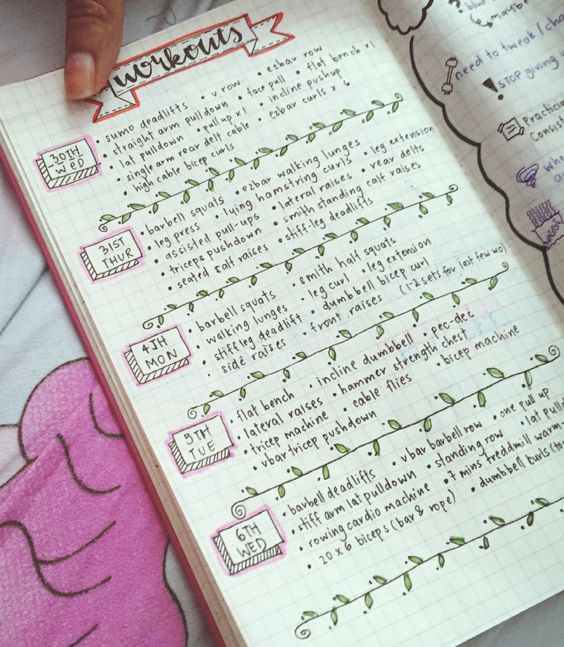 workouts
30TH WED
• sumo deadlifts • v row • ezbar row
• straight arm pulldown • face pull • flat bench x1
• lat pulldown • pull up x1 • incline pushup
• single arm rear delt cable • ezbar curls x 6
• high cable bicep curls
31ST THUR
• barbell squats • ezbar walking lunges • leg extension
• leg press • lying hamstring curls • rear delts
• assisted pull-ups • lateral raises
• triceps pushdown • smith standing calf raises
• seated calf raises • stiff-leg deadlifts
4TH MON
• barbell squats • smith half squats
• walking lunges • leg curl • leg extension
• stiff leg deadlift • dumbbell bicep curl
• side raises • front raises (1-2 sets for last few wo)
5TH TUE
• flat bench • incline dumbbell • pec-dec
• lateral raises • hammer strength chest
• tricep machine • cable flies • bicep machine
• vbar tricep pushdown
6TH WED
• barbell deadlifts • vbar barbell row • one pull up
• stiff arm lat pulldown • standing row • lat
• rowing cardio machine • 7 mins treddmill warm
• 20 x 6 biceps (bar & rope) • dumbbell curls
maybe
need to tweak
stop giving